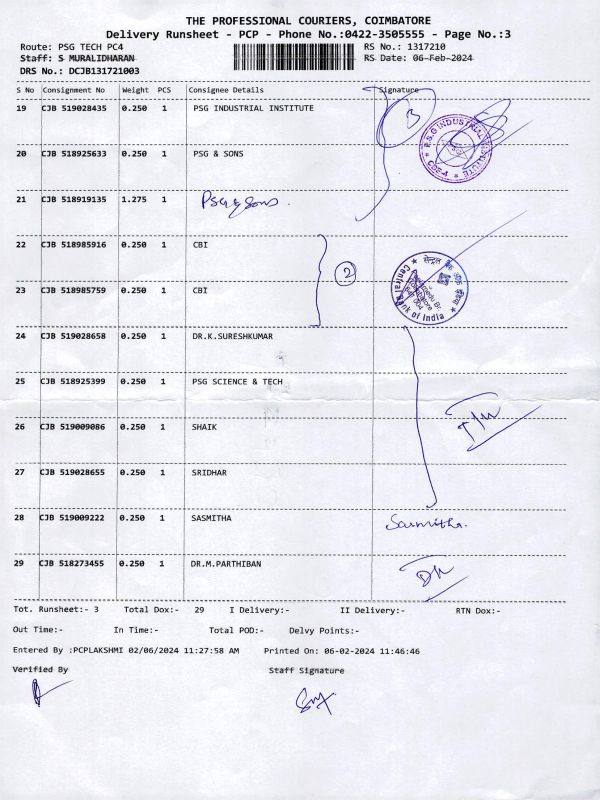 THE PROFESSIONAL COURIERS, COIMBATORE
Delivery Runsheet - PCP - Phone No.:0422-3505555 - Page No.:3
Route: PSG TECH PC4 RS No.: 1317210
Staff: S MURALIDHARAN RS Date: 06-Feb-2024
DRS No.: DCJB131721003
S No Consignment No Weight PCS Consignee Details Signature
19 CJB 519028435 0.250 1 PSG INDUSTRIAL INSTITUTE
3
P.S.G INDUSTRIAL INSTITUTE
CBE-4
20 CJB 518925633 0.250 1 PSG & SONS
21 CJB 518919135 1.275 1 PSG & Sons.
22 CJB 518985916 0.250 1 CBI
2
Central Bank of India
23 CJB 518985759 0.250 1 CBI
24 CJB 519028658 0.250 1 DR.K.SURESHKUMAR
25 CJB 518925399 0.250 1 PSG SCIENCE & TECH
26 CJB 519009086 0.250 1 SHAIK
27 CJB 519028655 0.250 1 SRIDHAR
28 CJB 519009222 0.250 1 SASMITHA Sasmitha.
29 CJB 518273455 0.250 1 DR.M.PARTHIBAN
Tot. Runsheet:- 3 Total Dox:- 29 I Delivery:- II Delivery:- RTN Dox:-
Out Time:- In Time:- Total POD:- Delvy Points:-
Entered By :PCPLAKSHMI 02/06/2024 11:27:58 AM Printed On: 06-02-2024 11:46:46
Verified By Staff Signature